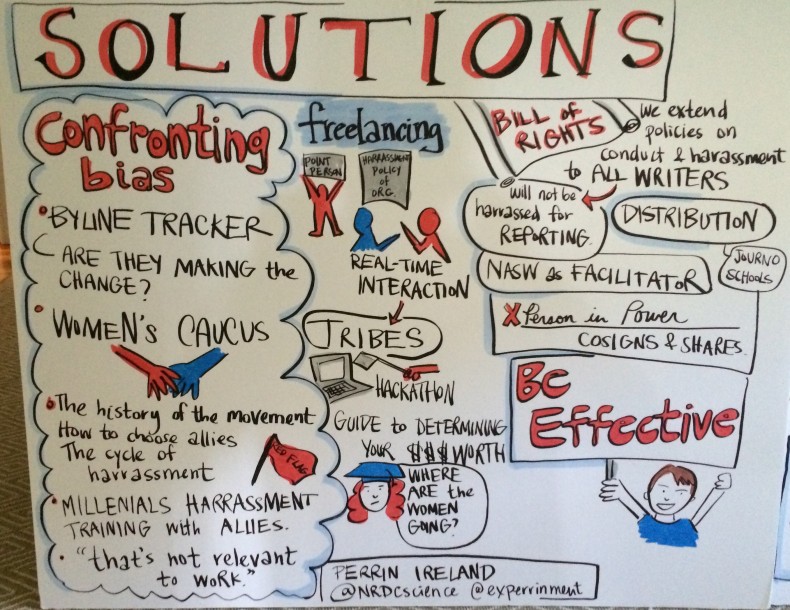 SOLUTIONS
Confronting
bias
• BYLINE TRACKER
ARE THEY MAKING the
CHANGE?
• WOMEN's CAUCUS
• The history of the movement
How to choose allies
The cycle of
harrassment
RED FLAG
• MILLENIALS HARRASSMENT
TRAINING with ALLIES.
• "that's not relevant
to WORK."
freelancing
POINT
PERSON
HARRASSMENT
POLICY
of
ORG.
REAL-TIME
INTERACTION
TRIBES
HACKATHON
GUIDE to DETERMINING
YOUR $$$ WORTH
WHERE
ARE the
WOMEN
GOING?
BILL of
RIGHTS
We extend
policies on
conduct & harassment
to ALL WRITERS
will not be
harrassed for
REPORTING.
DISTRIBUTION
JOURNO
SCHOOLS
NASW as FACILITATOR
X Person in Power
COSIGNS & SHARES.
BE
Effective
PERRIN IRELAND
@NRDCscience @experrinment